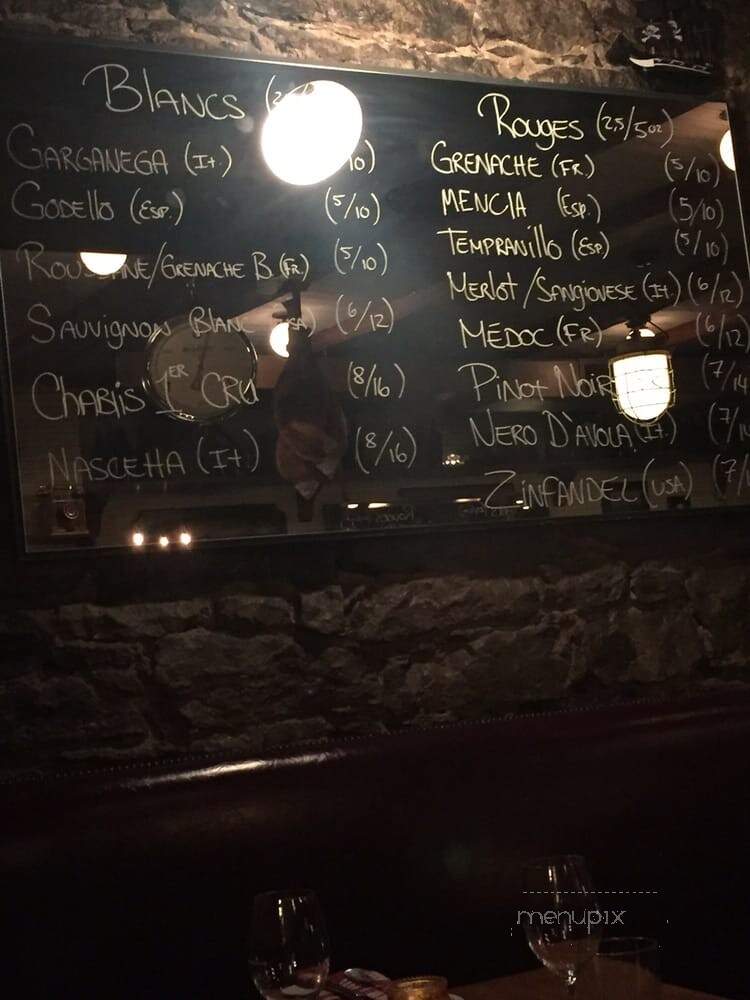 Blancs
Garganega (It.) 10)
Godello (Esp.) (5/10)
Grenache B (Fr.) (5/10)
Sauvignon Blanc (6/12)
Chablis 1er Cru (8/16)
Nascetta (It.) (8/16)
Rouges (2,5/5oz)
Grenache (Fr.) (5/10)
Mencia (Esp.) (5/10)
Tempranillo (Esp) (5/10)
Merlot/Sangiovese (It.) (6/12)
Médoc (Fr) (6/12)
Pinot Noir (7/14
Nero D'Avola (It.) (7/14
Zinfandel (USA) (7/
menupix